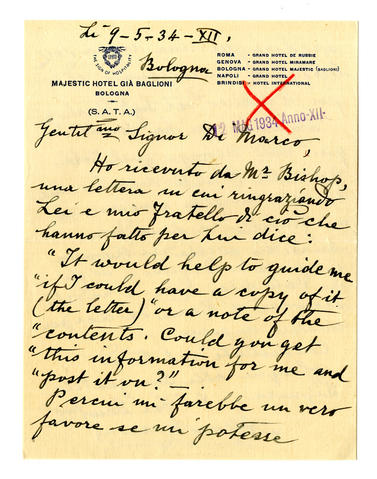 Li 9-5-34-XII,
Bologna
THE SIGN OF HOSPITALITY
MAJESTIC HOTEL GIÀ BAGLIONI
BOLOGNA
(S.A.T.A.)
ROMA - GRAND HOTEL DE RUSSIE
GENOVA - GRAND HOTEL MIRAMARE
BOLOGNA - GRAND HOTEL MAJESTIC (BAGLIONI)
NAPOLI - GRAND HOTEL
BRINDISI - HOTEL INTERNATIONAL
12 MAG 1934 Anno-XII-
Gentilmo Signor De Marco,
Ho ricevuto da Mr Bishop,
una lettera in cui ringraziando
Lei e mio fratello di ciò che
hanno fatto per lui dice:
"It would help to guide me
"if I could have a copy of it
(the letter)" or a note of the
"contents. Could you get
"this information for me and
"post it on?"
Percui mi farebbe un vero
favore se mi potesse